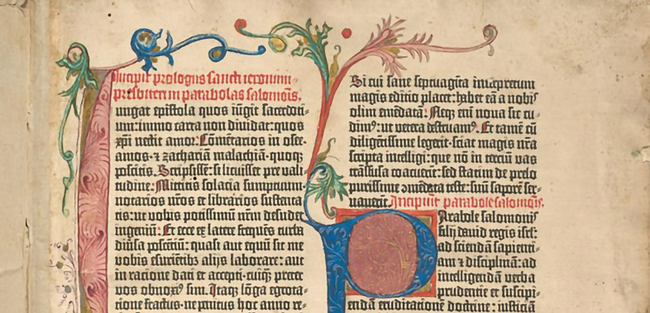 Incipit prologus sancti ieronimi
presbiteri in parabolas salomonis.
Iungat epistola quos iũgit sacerdoti-
um: immo carta non dividat: quos
xp̃i nectit amor. Cõmentarios in osee.
amos. ⁊ zachariam malachiam. quoqȝ
poscitis. Scripsissẽ: si licuisset pre vali-
tudine. Mittitis solacia sumptuum.
notarios nr̃os et librarios sustenta-
tis: ut vobis potissimum nr̃m desudet
ingeniũ. Et ecce ex latere frequẽs turba
diũsa poscẽtiũ: quasi aut equũ sit me
vobis esuriẽtibus alijs laborare: aut
in racione dati et accepti. cuiq̃ȝ preter
vos obnoxi⁹ sim. Itaqȝ lõga egrota-
tione fractus. ne penitus hoc anno re-
Si cui sane septuagĩta interpretum
magis editio placet: habet eã a nobis
olim emẽdatã. Neqȝ enĩ nova sic cu-
dim⁹: ut vetera destruam⁹. Et tamẽ cũ
diligẽtissime legerit. sciat magis nr̃a
scripta intelligi: que nõ in terciũ vas
trãsfusa coacuerĩt: sed statim de prelo
purissime ɔmẽdata teste: suũ saporẽ ser-
vaverĩt. Incipiũt parabole salomonis.
Parabole salomonis
filij david regis isrl̃:
ad sciendã sapienti-
am ⁊ disciplinã: ad
intelligendã verba
prudentie et suscipi-
endã eruditationẽ doctrine: iusticiã